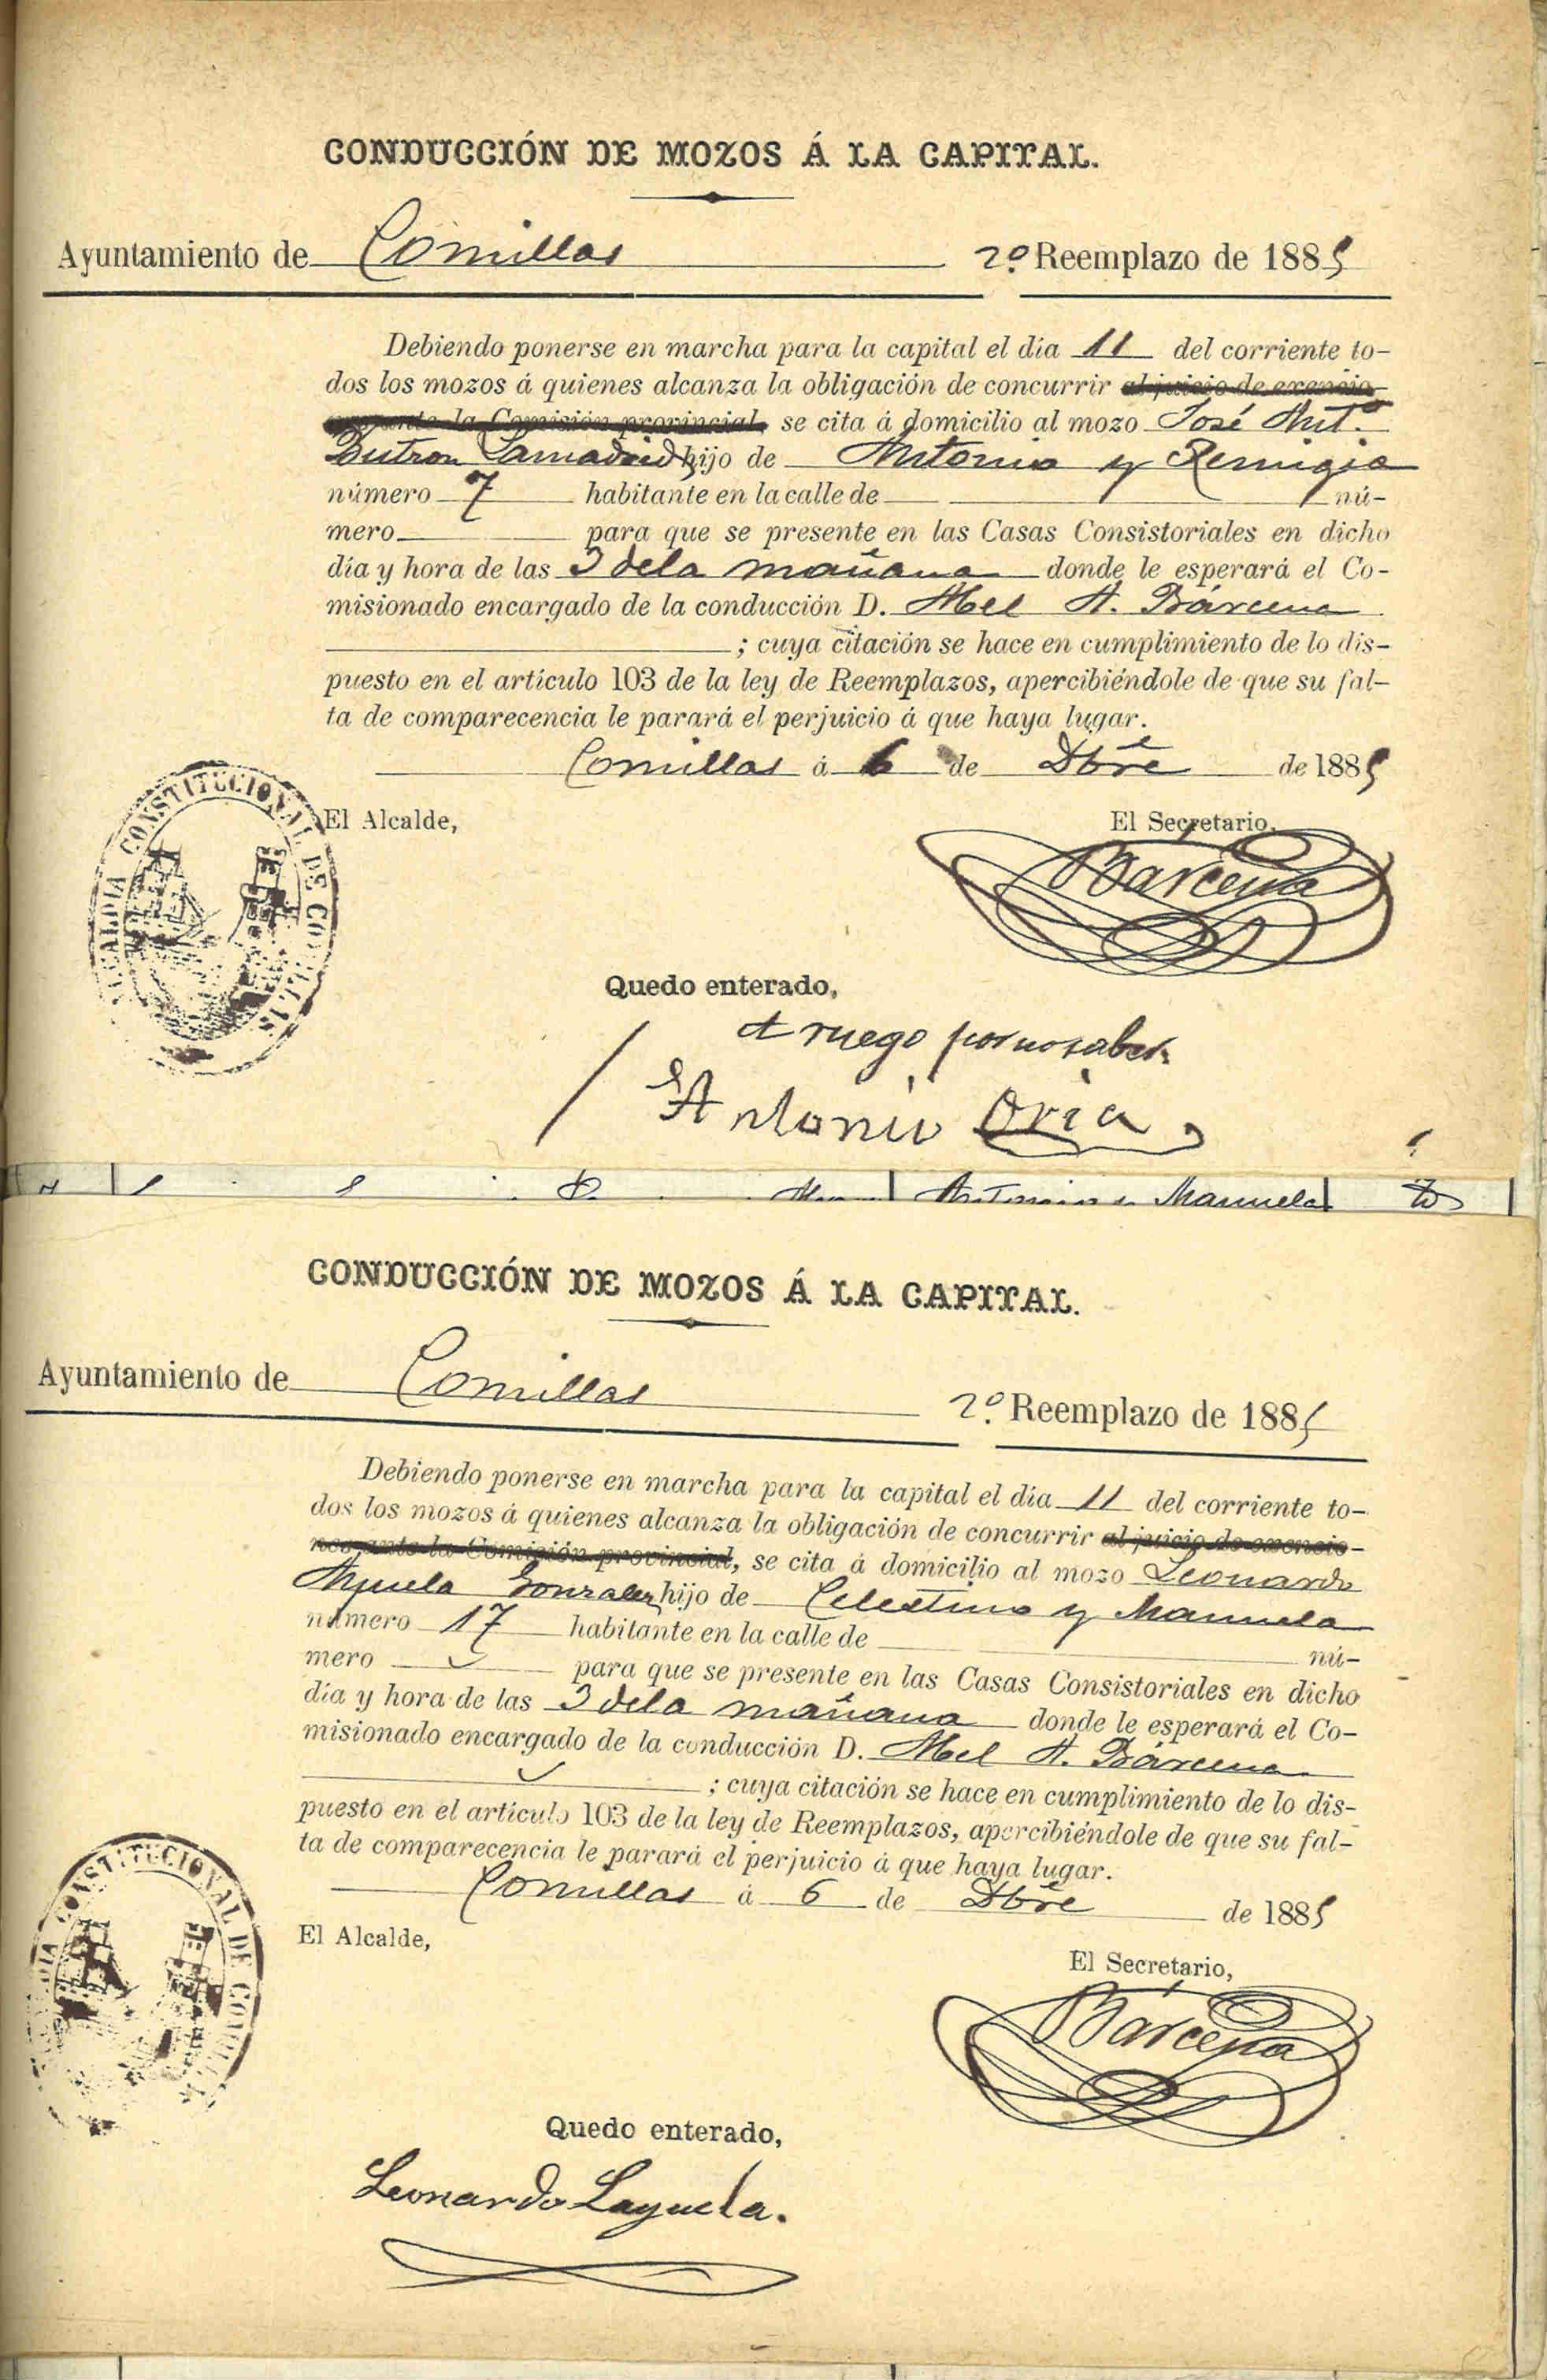 CONDUCCIÓN DE MOZOS Á LA CAPITAL.
Ayuntamiento de Comillas 2º. Reemplazo de 1885
Debiendo ponerse en marcha para la capital el día 11 del corriente to-
dos los mozos á quienes alcanza la obligación de concurrir al juicio de exencio-
nes ante la Comisión provincial, se cita á domicilio al mozo José Antº.
Butron Samadrid hijo de Antonio y Remigia
número 7 habitante en la calle de nú-
mero para que se presente en las Casas Consistoriales en dicho
día y hora de las 3 de la mañana donde le esperará el Co-
misionado encargado de la conducción D. Abel A. Bárcena
; cuya citación se hace en cumplimiento de lo dis-
puesto en el artículo 103 de la ley de Reemplazos, apercibiéndole de que su fal-
ta de comparecencia le parará el perjuicio á que haya lugar.
Comillas á 6 de Dbre de 1885
ALCALDIA CONSTITUCIONAL DE COMILLAS
El Alcalde,
El Secretario,
Bárcena
Quedo enterado,
A ruego por no saber
Antonio Oria
Antonio y Manuela
CONDUCCIÓN DE MOZOS Á LA CAPITAL.
Ayuntamiento de Comillas 2º. Reemplazo de 1885
Debiendo ponerse en marcha para la capital el día 11 del corriente to-
dos los mozos á quienes alcanza la obligación de concurrir al juicio de exencio-
nes ante la Comisión provincial, se cita á domicilio al mozo Leonardo
Ayuela Gonzalez hijo de Celestino y Manuela
número 17 habitante en la calle de nú-
mero para que se presente en las Casas Consistoriales en dicho
día y hora de las 3 de la mañana donde le esperará el Co-
misionado encargado de la conducción D. Abel A. Bárcena
; cuya citación se hace en cumplimiento de lo dis-
puesto en el artículo 103 de la ley de Reemplazos, apercibiéndole de que su fal-
ta de comparecencia le parará el perjuicio á que haya lugar.
Comillas á 6 de Dbre de 1885
ALCALDIA CONSTITUCIONAL DE COMILLAS
El Alcalde,
El Secretario,
Bárcena
Quedo enterado,
Leonardo Layuela.